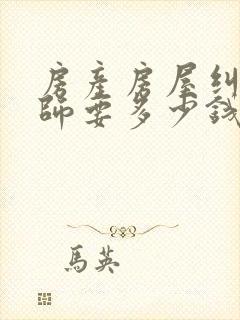 房產房屋糾
師要多少錢
馬英